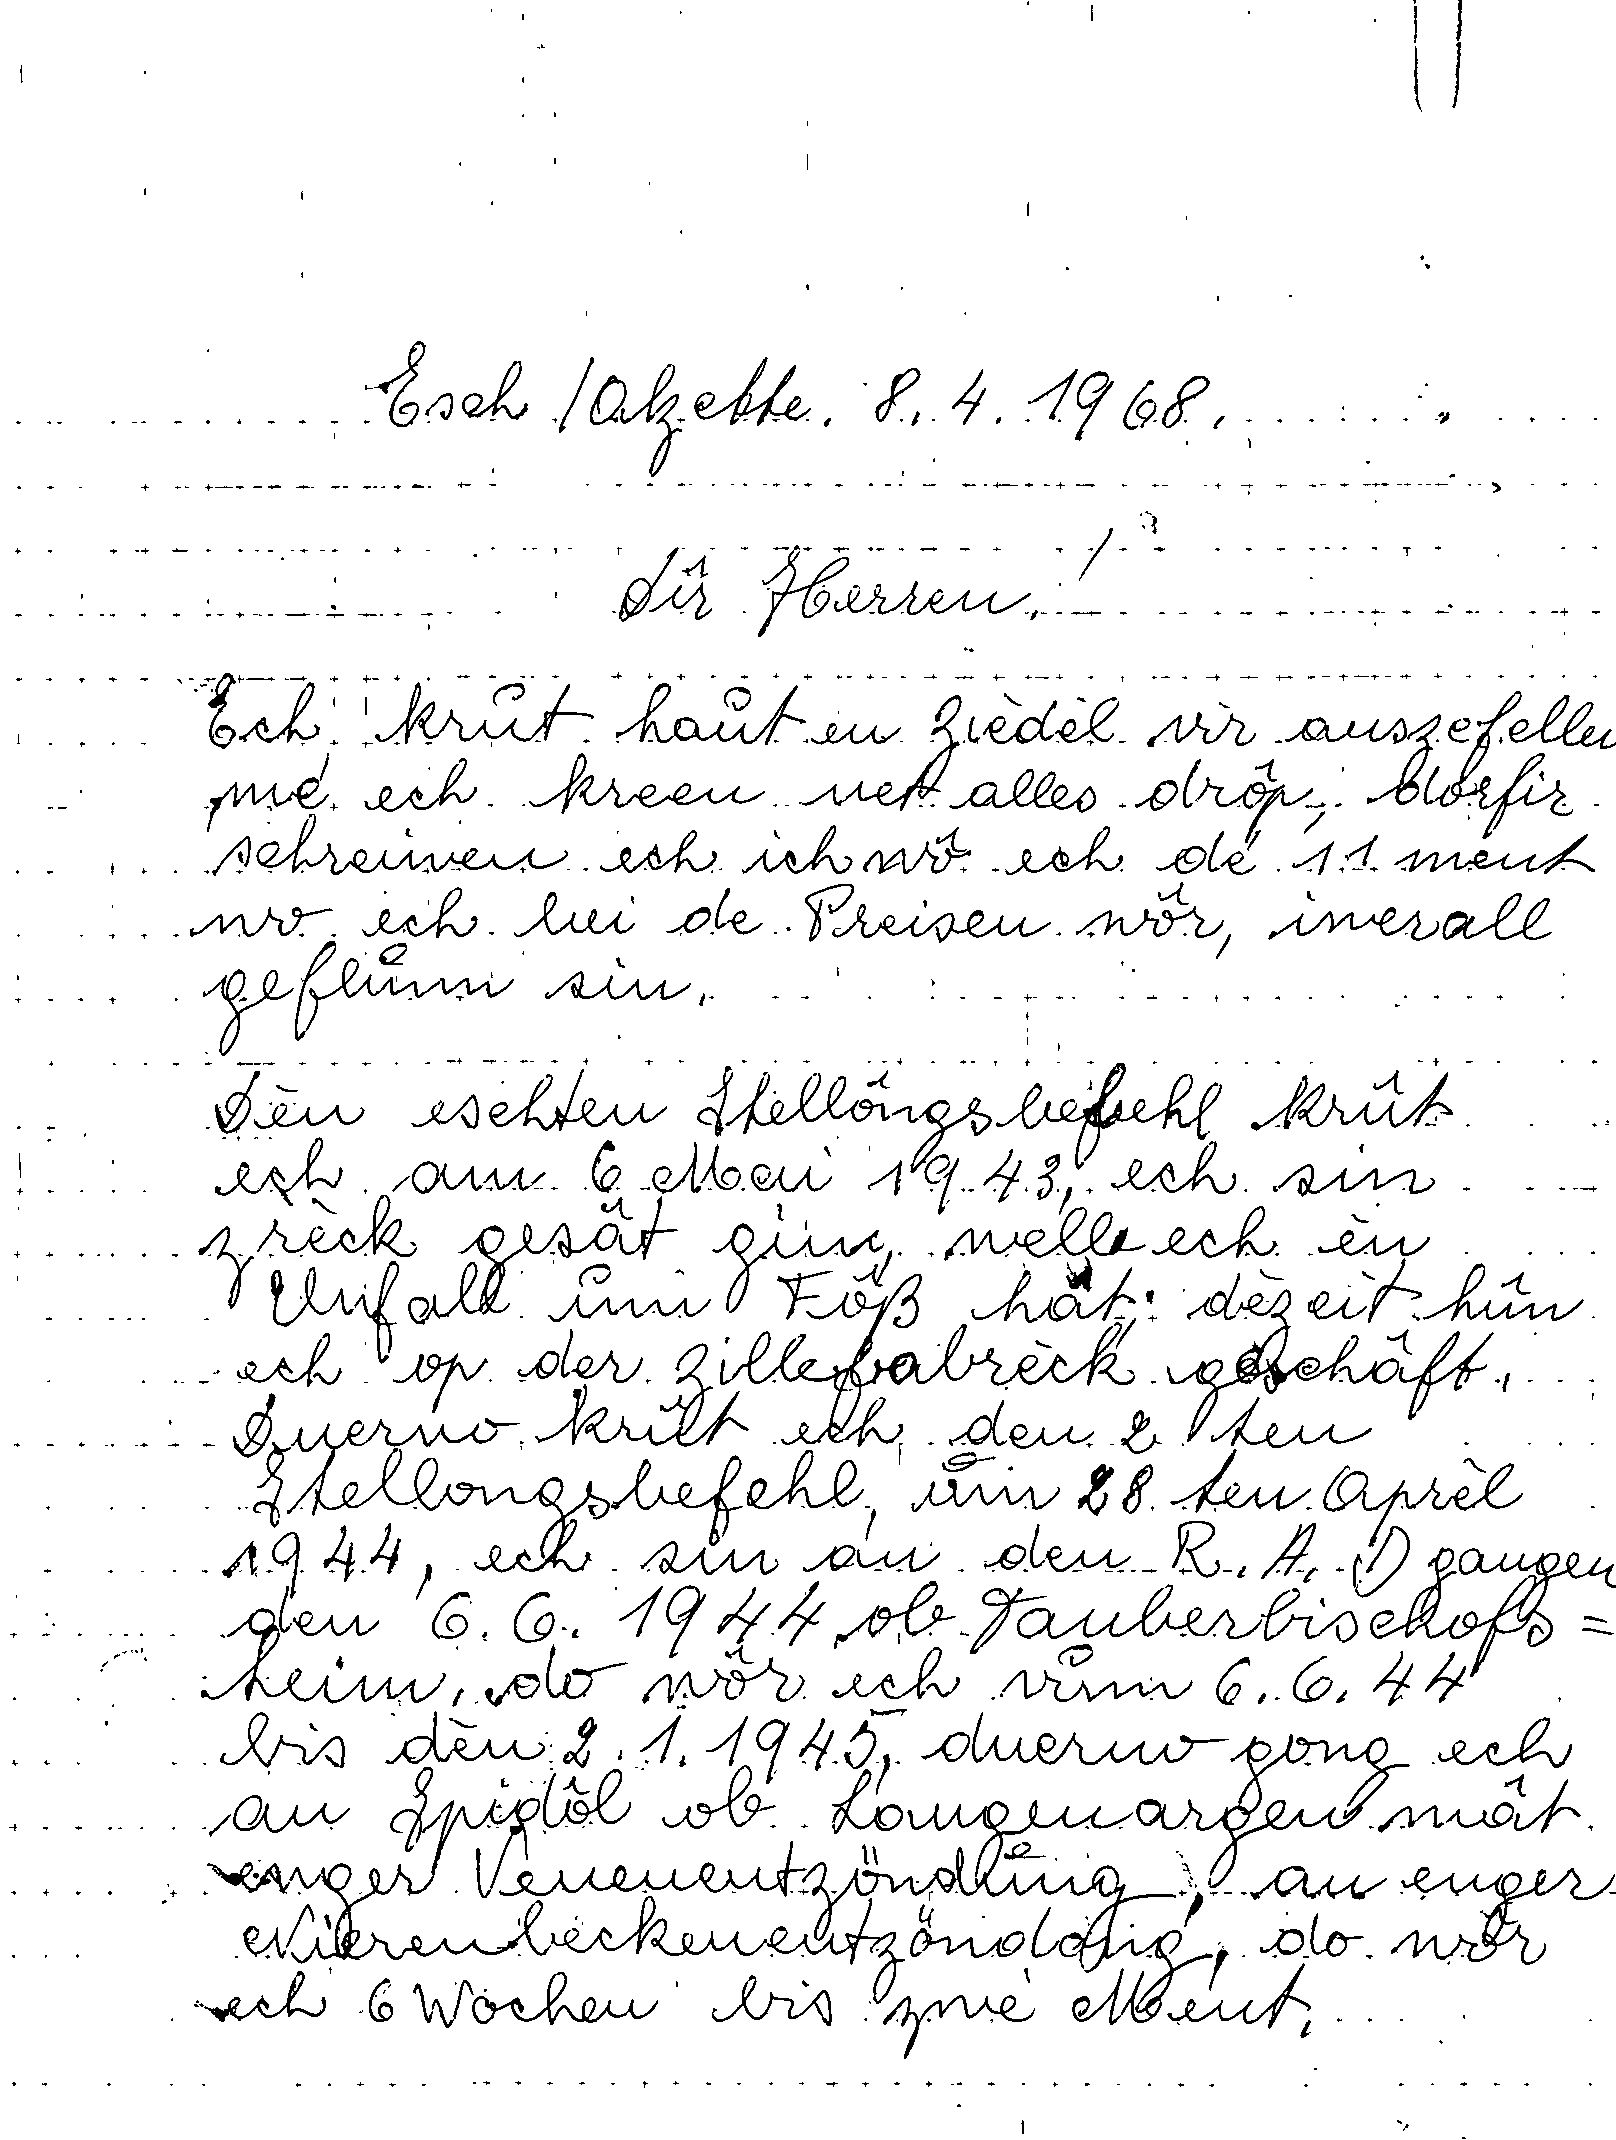 Esch /Alzette. 8. 4. 1968.
Dîr Herren!
Ech krût haût en Zièdèl vir auszefellen
mé ech kreen net alles drôp, dorfir
schreiwen ech ich wô ech dé 11 ment
wo ech bei de Preisen wôr, iwerall
geflùnn sin.
Dèn eschten Stellôngsbefehl krût
ech am 6 Mai 1943, ech sin
zrèck gesât gin, well ech èn
Unfall um Föß hât; dèzeit hûn
ech op der Zillefabrèck geschâft.
Duerno krût ech den 2 ten
Stellongsbefehl, ûm 28 ten Aprèl
1944, ech sin an den R. A. D gangen
den 6. 6. 1944 ob Tauberbischofs=
heim, do wôr ech vum 6. 6. 44
bis dèn 2. 1. 1945, duerno gong ech
an Spidôl ob Langenargen mât
enger Venenentzöndung, an enger
Nierenbeckenentzöndong, do wôr
ech 6 Wochen bis zwé Ment.